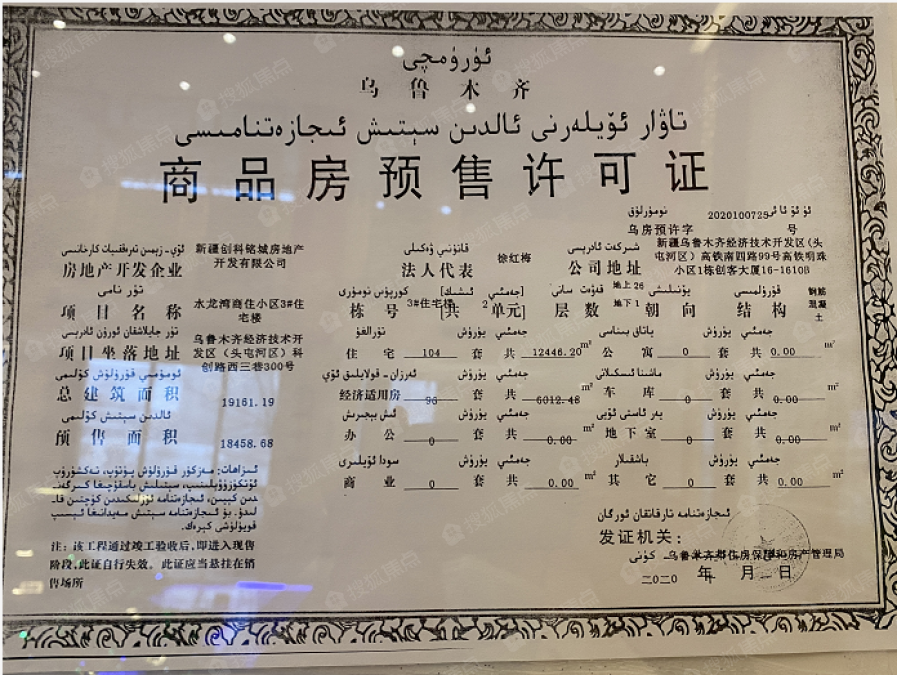 ئۈرۈمچى
乌鲁木齐
تاۋار ئۆيلەرنى ئالدىن سېتىش ئىجازەتنامىسى
商品房预售许可证
نومۇرلۇق 2020100725
乌房预许字 号
ئۆي-زېمىن تەرەققىيات كارخانىسى
房地产开发企业 新疆创科铭城房地产开发有限公司
قانۇنىي ۋەكىلى
法人代表 徐红梅
شىركەت ئادرېسى
公司地址 新疆乌鲁木齐经济技术开发区(头屯河区)高铁南四路99号高铁明珠小区1栋创客大厦16-1610B
تۈر نامى
项目名称 水龙湾商住小区3#住宅楼
كورپۇس نومۇرى [جەمئىي ئىشىك]
栋号 3#住宅楼 [共 2 单元]
قەۋەت سانى
层数 地上26 地下1
يۈنىلىشى
朝向
قۇرۇلمىسى
结构 钢筋混凝土
تۈر جايلاشقان ئورۇن ئادرېسى
项目坐落地址 乌鲁木齐经济技术开发区(头屯河区)科创路西三巷300号
تۇرالغۇ جەمئىي يۈرۈش
住宅 104 套 共 12446.20 m²
ياتاق بىناسى جەمئىي يۈرۈش
公寓 0 套 共 0.00 m²
ئومۇمىي قۇرۇلۇش كۆلىمى
总建筑面积 19161.19
ئەرزان-قولايلىق ئۆي جەمئىي يۈرۈش
经济适用房 96 套 共 6012.48 m²
ماشىنا ئىسكىلاتى جەمئىي يۈرۈش
车库 0 套 共 0.00 m²
ئالدىن سېتىش كۆلىمى
预售面积 18458.68
ئىش بېجىرىش جەمئىي يۈرۈش
办公 0 套 共 0.00 m²
يەر ئاستى ئۆيى جەمئىي يۈرۈش
地下室 0 套 共 0.00 m²
سودا ئۆيلىرى جەمئىي يۈرۈش
商业 0 套 共 0.00 m²
باشقىلار جەمئىي يۈرۈش
其它 0 套 共 0.00 m²
注:该工程通过竣工验收后,即进入现售
阶段,此证自行失效。此证应当悬挂在销
售场所
ئىجازەتنامە تارقاتقان ئورگان
发证机关:
乌鲁木齐市住房保障和房产管理局
二〇二〇 年 月 日
搜狐焦点